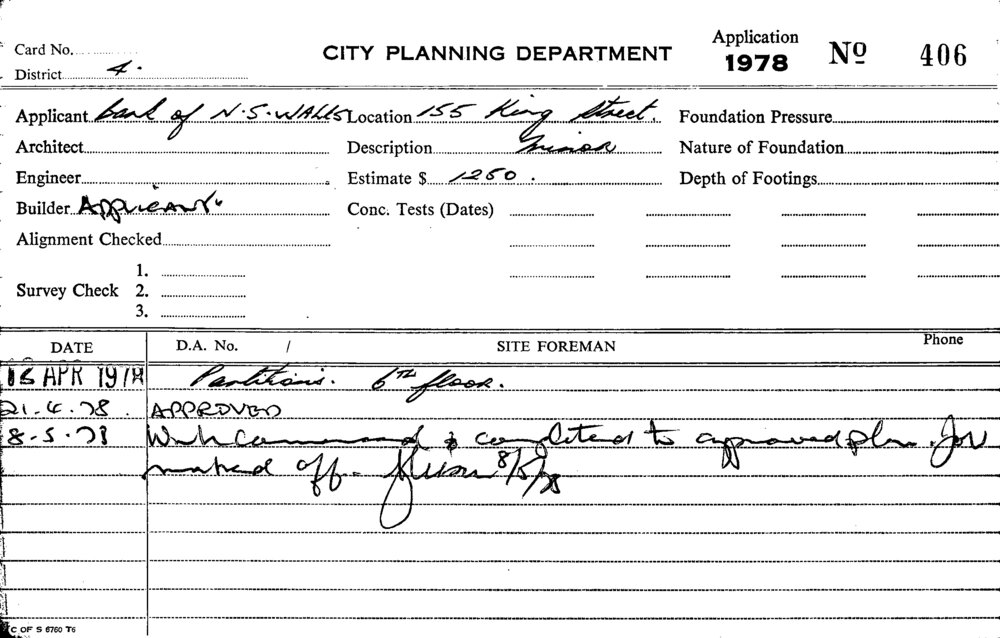 Card No.
CITY PLANNING DEPARTMENT
Application 1978 Nº 406
District 4.
Applicant Bank of N.S. WALES Location 155 King Street. Foundation Pressure
Architect Description Minor Nature of Foundation
Engineer Estimate $ 1250. Depth of Footings
Builder APPLICANT Conc. Tests (Dates)
Alignment Checked
1.
Survey Check 2.
3.
DATE D.A. No. / SITE FOREMAN Phone
APR 1978 Partitions. 6TH floor.
21.4.78. APPROVED
8.5.78 Work commenced & completed to approved plan. Job
marked off. 8/5/78
C OF S 6760 T6